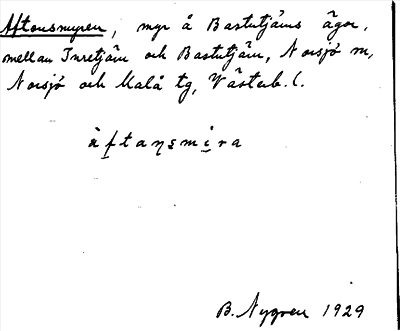 Aftonsmyren, myr å Bastutjäms ägor,
mellan Inretjäm och Bastutjäm, Norsjö m,
Norsjö och Malå tg, Västerb. l.
àftaŋsmi̮ra
B. Nygren 1929